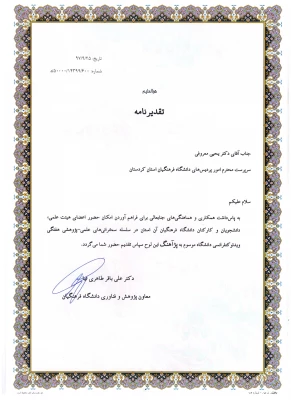 تاریخ: ۹۷/۹/۲۵
شماره: ۵۰۰۰۰/۱۴۳۹۹/۶۰۰
هوالعلیم
تقدیرنامه
جناب آقای دکتر یحیی معروفی
سرپرست محترم امور پردیس‌های دانشگاه فرهنگیان استان کردستان
سلام علیکم
به پاس‌داشت همکاری و هماهنگی‌های جنابعالی برای فراهم آوردن امکان حضور اعضای هیئت علمی،
دانشجویان و کارکنان دانشگاه فرهنگیان آن استان در سلسله سخنرانی‌های علمی-پژوهشی هفتگی
ویدئوکنفرانسی دانشگاه موسوم به پژآهنگ این لوح سپاس تقدیم حضور شما می‌گردد.
دکتر علی باقر طاهری نیا
معاون پژوهش و فناوری دانشگاه فرهنگیان